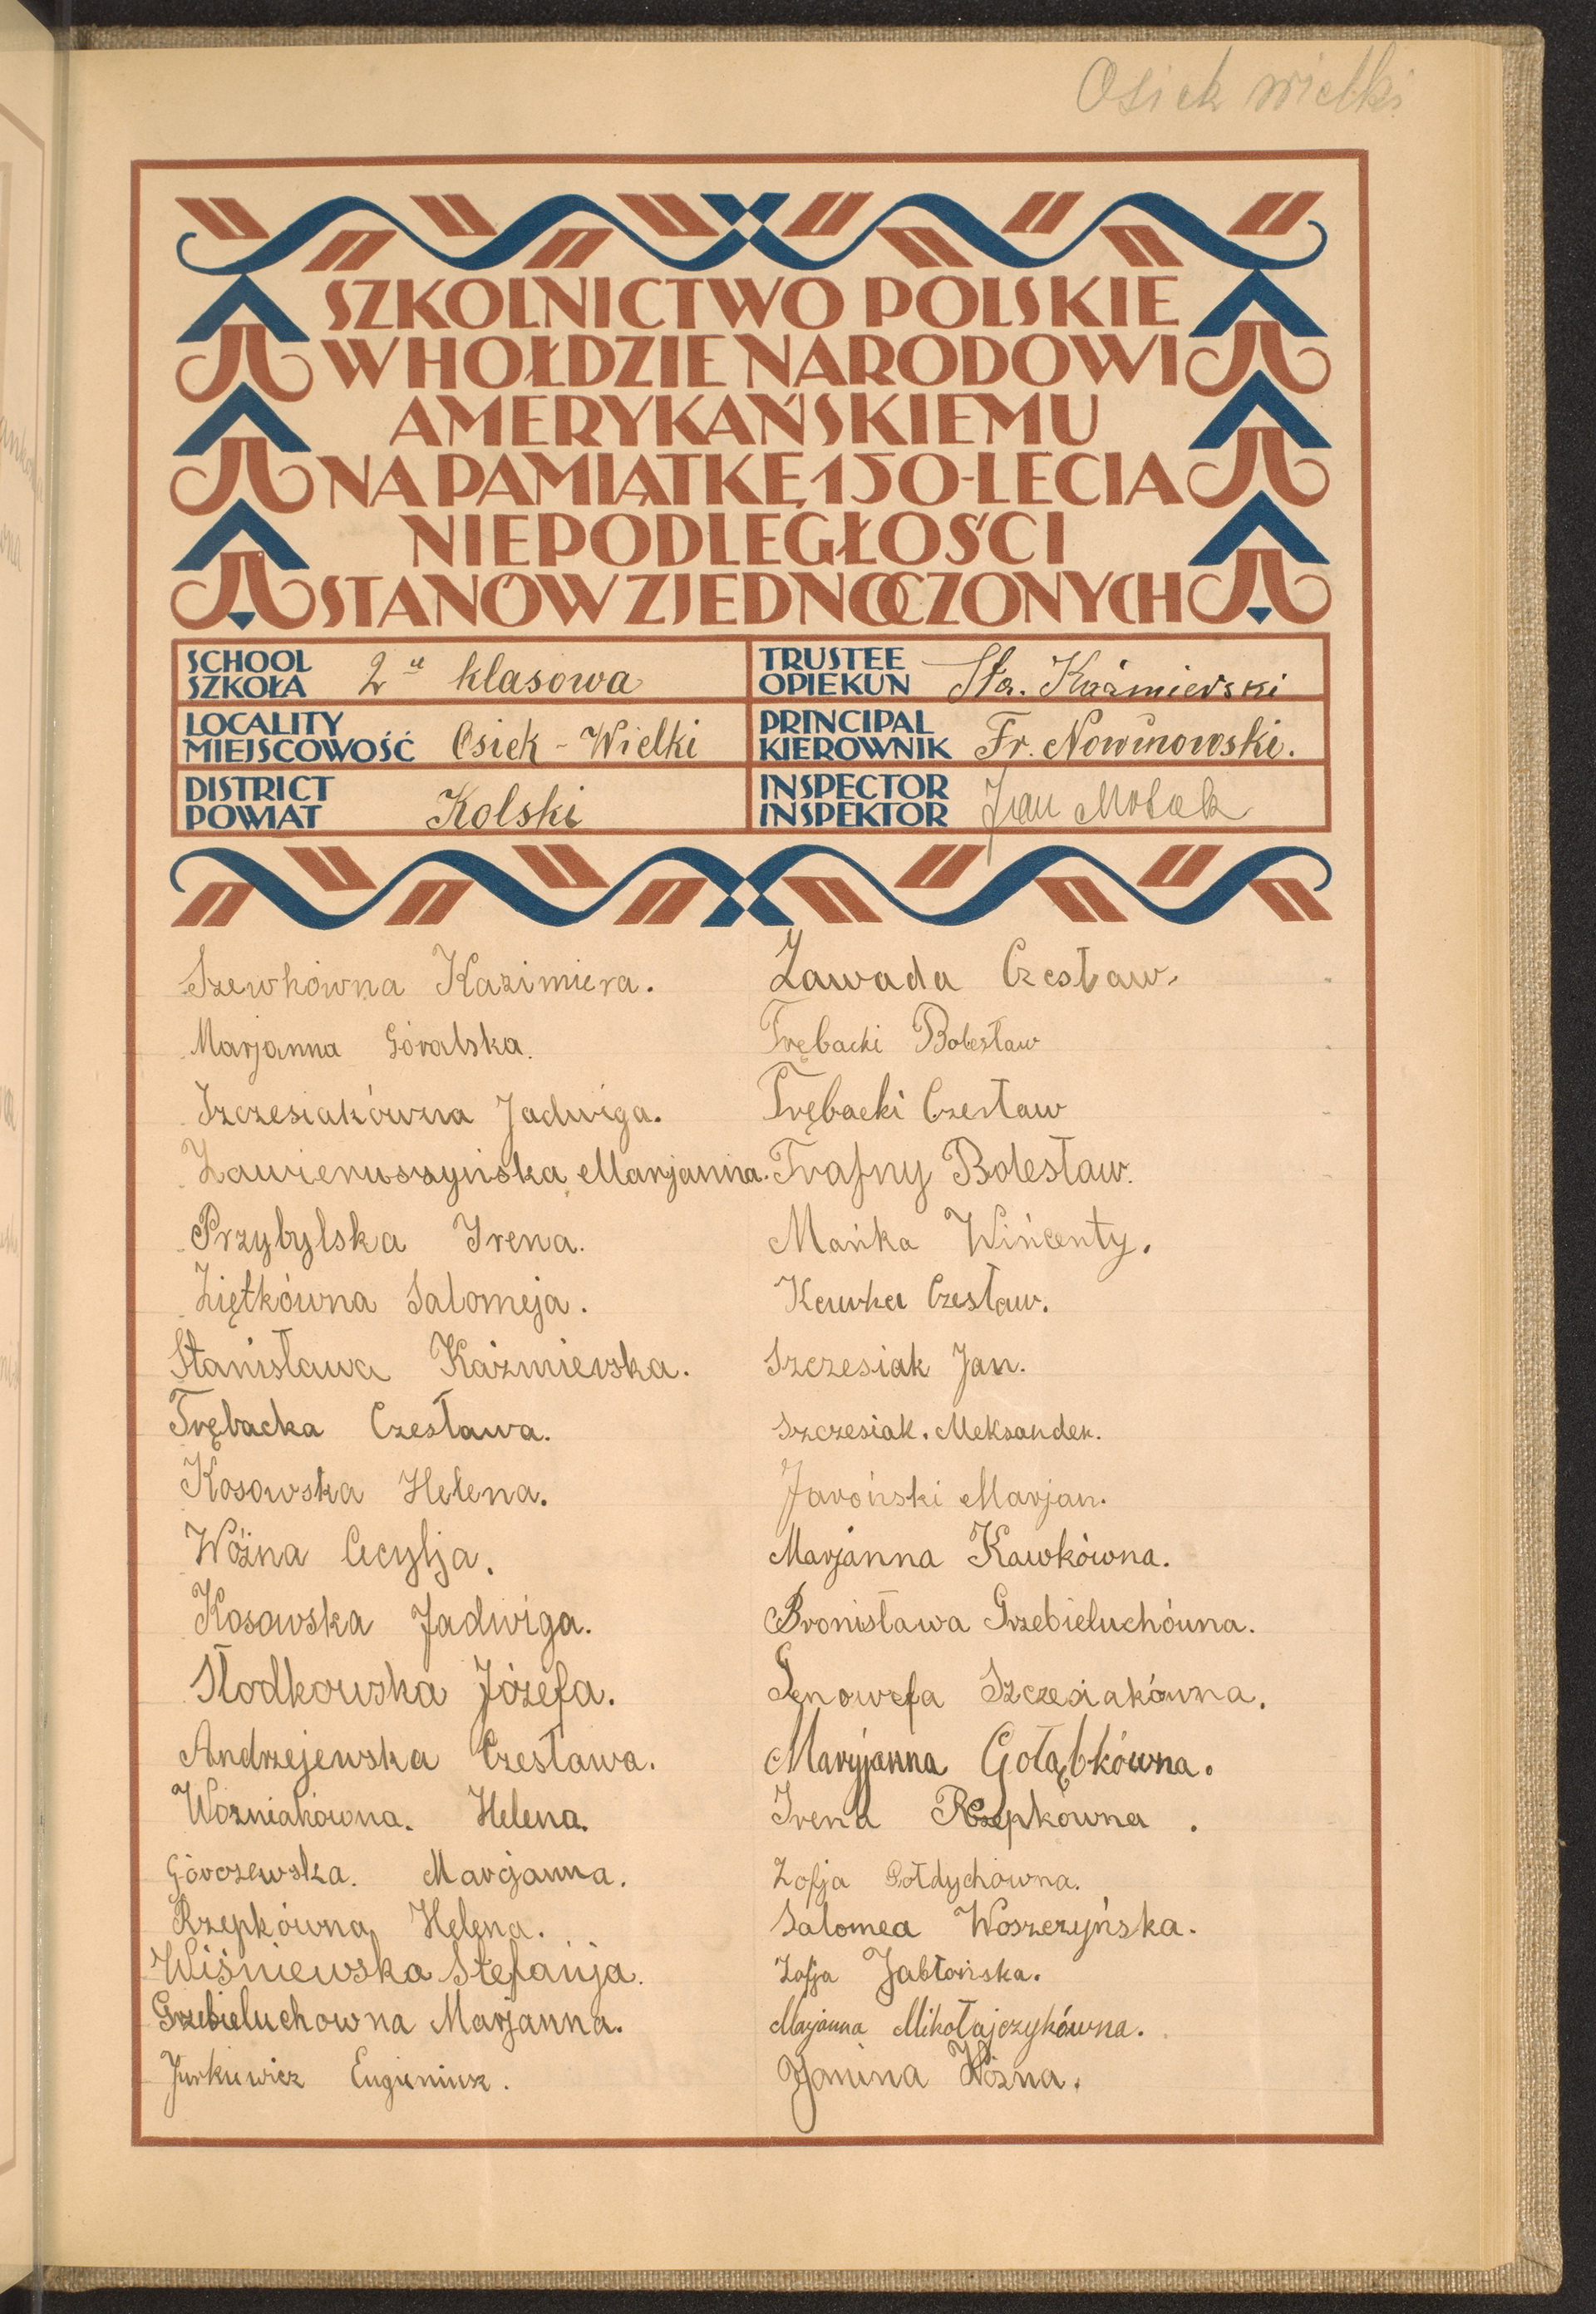 Osiek wielki
SZKOLNICTWO POLSKIE
W HOŁDZIE NARODOWI
AMERYKAŃSKIEMU
NA PAMIĄTKĘ 150-LECIA
NIEPODLEGŁOŚCI
STANÓW ZJEDNOCZONYCH
SCHOOL
SZKOŁA 2 u klasowa
LOCALITY
MIEJSCOWOŚĆ Osiek - Wielki
DISTRICT
POWIAT Kolski
TRUSTEE
OPIEKUN Sta. Kaźmierski
PRINCIPAL
KIEROWNIK Fr. Nowinowski.
INSPECTOR
INSPEKTOR Jan
Szewkówna Kazimiera.
Marjanna Góralska.
Szczesiakówna Jadwiga.
Zawieruszyńska Marjanna.
Przybylska Irena.
Ziętkówna Salomeja.
Stanisława Kaźmierska.
Trębacka Czesława.
Kosowska Helena.
Woźna Cecylja.
Kosowska Jadwiga.
Słodkowska Józefa.
Andrzejewska Czesława.
Wozniakówna. Helena.
Górczewska. Marjanna.
Rzepkówna Helena.
Wiśniewska Stefanja.
Grzebieluchowna Marjanna.
Jurkiewicz Eugieniusz.
Zawada Czesław.
Trębacki Bolesław
Trębacki Czesław
Trafny Bolesław.
Mańka Wińcenty.
Kawka Czesław.
Szczesiak Jan.
Szczesiak. Aleksander.
Jaroński Marjan.
Marjanna Kawkówna.
Bronisława Grzebieluchówna.
Genowefa Szczesiakówna.
Maryjanna Gołąbkówna.
Irena Rzepkówna.
Zofja Gołdychówna.
Salomea Woszczyńska.
Zofja Jabłońska.
Marjanna Mikołajczykówna.
Janina Woźna.